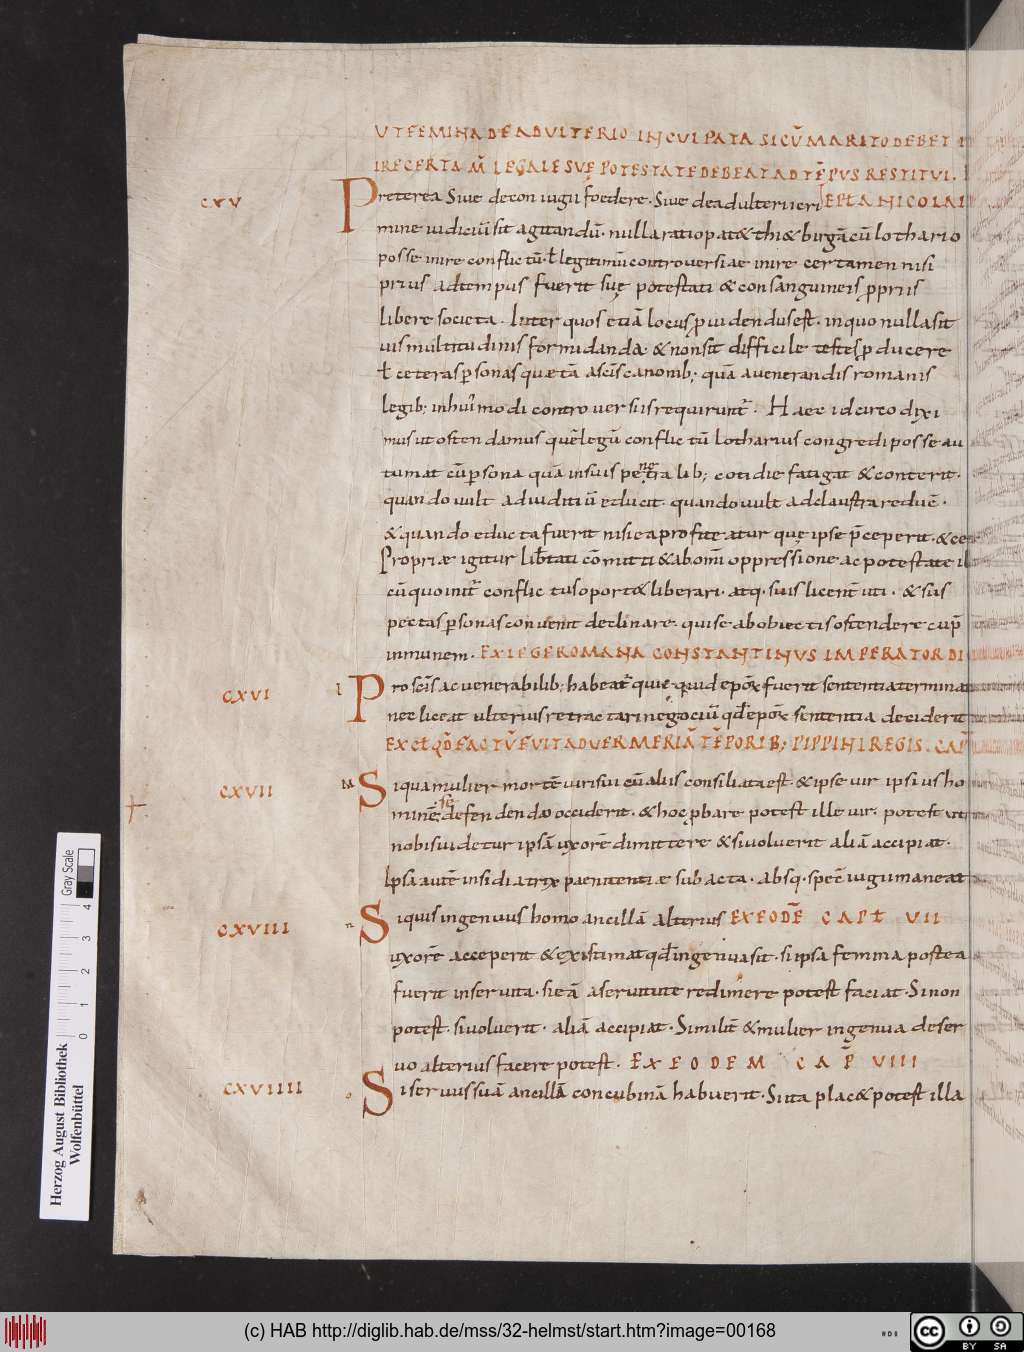 UT FEMINA DE ADULTERIO INCULPATA SI CŪ MARITO DEBET
IRE CERTAM̄ LEGALE SUĘ POTESTATE DEBEAT AD TĒPUS RESTITUI.
CXV
Preterea Siue de coniugii foedere. Siue de adulterii cri EPLA NICOLAI
mine iudiciū sit agitandū. nulla ratio pat& thi&birgā cū lothario
posse inire conflictū. ł legitimū controuersiae inire certamen nisi
prius ad tempus fuerit suę potestati & consanguineis ꝓpriis
libere societa. Inter quos etiā locus ꝓuidendus est. in quo nulla sit
uis multitudinis formidanda. & non sit difficile testes ꝓducere
ł ceteras ꝑsonas quæ tā a scīs canonib; quā a uenerandis romanis
legib; in hui'modi controuersiis requirunt̄. Haec idcirco dixi
mus ut ostendamus quēlegū conflictū lotharius congredi posse au
tumat cū ꝑsona quā in suis penetralib; cotidie fatigat & conterit.
quando uult ad iuditiū educit. quando uult ad claustra reducē.
& quando educta fuerit nisi ea profiteatur quę ipse p̄ceperit. & ce
Propriæ igitur lib̄tati cōmitti & ab omī oppressione ac potestate il
cū quo init̄ conflictus oport& liberari. atq. suis licenē uti. & sus
pectas ꝑsonas conuenit declinare. quise ab obiectis ostendere cup̄
inmunem. EX LEGE ROMANA CONSTANTINUS IMPERATOR DI
CXVI
l
Pro scīs ac uenerabilib; habeat̄ quicquid epōꝝ fuerit sententia terminat
nec liceat ulterius retractari negociū qd̄ epōꝝ sententia deciderit
EX CŁ QD̄ FACTŪ FUIT AD UERMERIĀ TĒPORIB; PIPPINI REGIS. CAP̄
CXVII
M
Si qua mulier mortē uiri sui cū aliis consiliata est & ipse uir ipsius ho
minē se defendendo occiderit. & hoc ꝓbare potest ille uir. potest ut
nobis uidetur ipsā uxorē dimittere & si uoluerit aliā accipiat.
Ipsa autē insidiatrix paenitentiæ subacta. absq. spe c̄iugii maneat
CXVIII
n
Siquis ingenuus homo ancillā alterius EX EODĒ CAPŁ VII
uxorē acceperit & existimat qd̄ ingenua sit. si ipsa femina postea
fuerit inseruita. si eā a seruitute redimere potest faciat. Sinon
potest. si uoluerit. aliā accipiat. Similit̄ & mulier ingenua de ser
uo alterius facere potest. EX EODEM CAP̄ VIII
CXVIIII
o
Si seruus suā ancillā concubinā habuerit. Si ita plac& potest illa
Gray Scale
0 1 2 3 4
Herzog August Bibliothek
Wolfenbüttel
(c) HAB http://diglib.hab.de/mss/32-helmst/start.htm?image=00168
cc BY SA